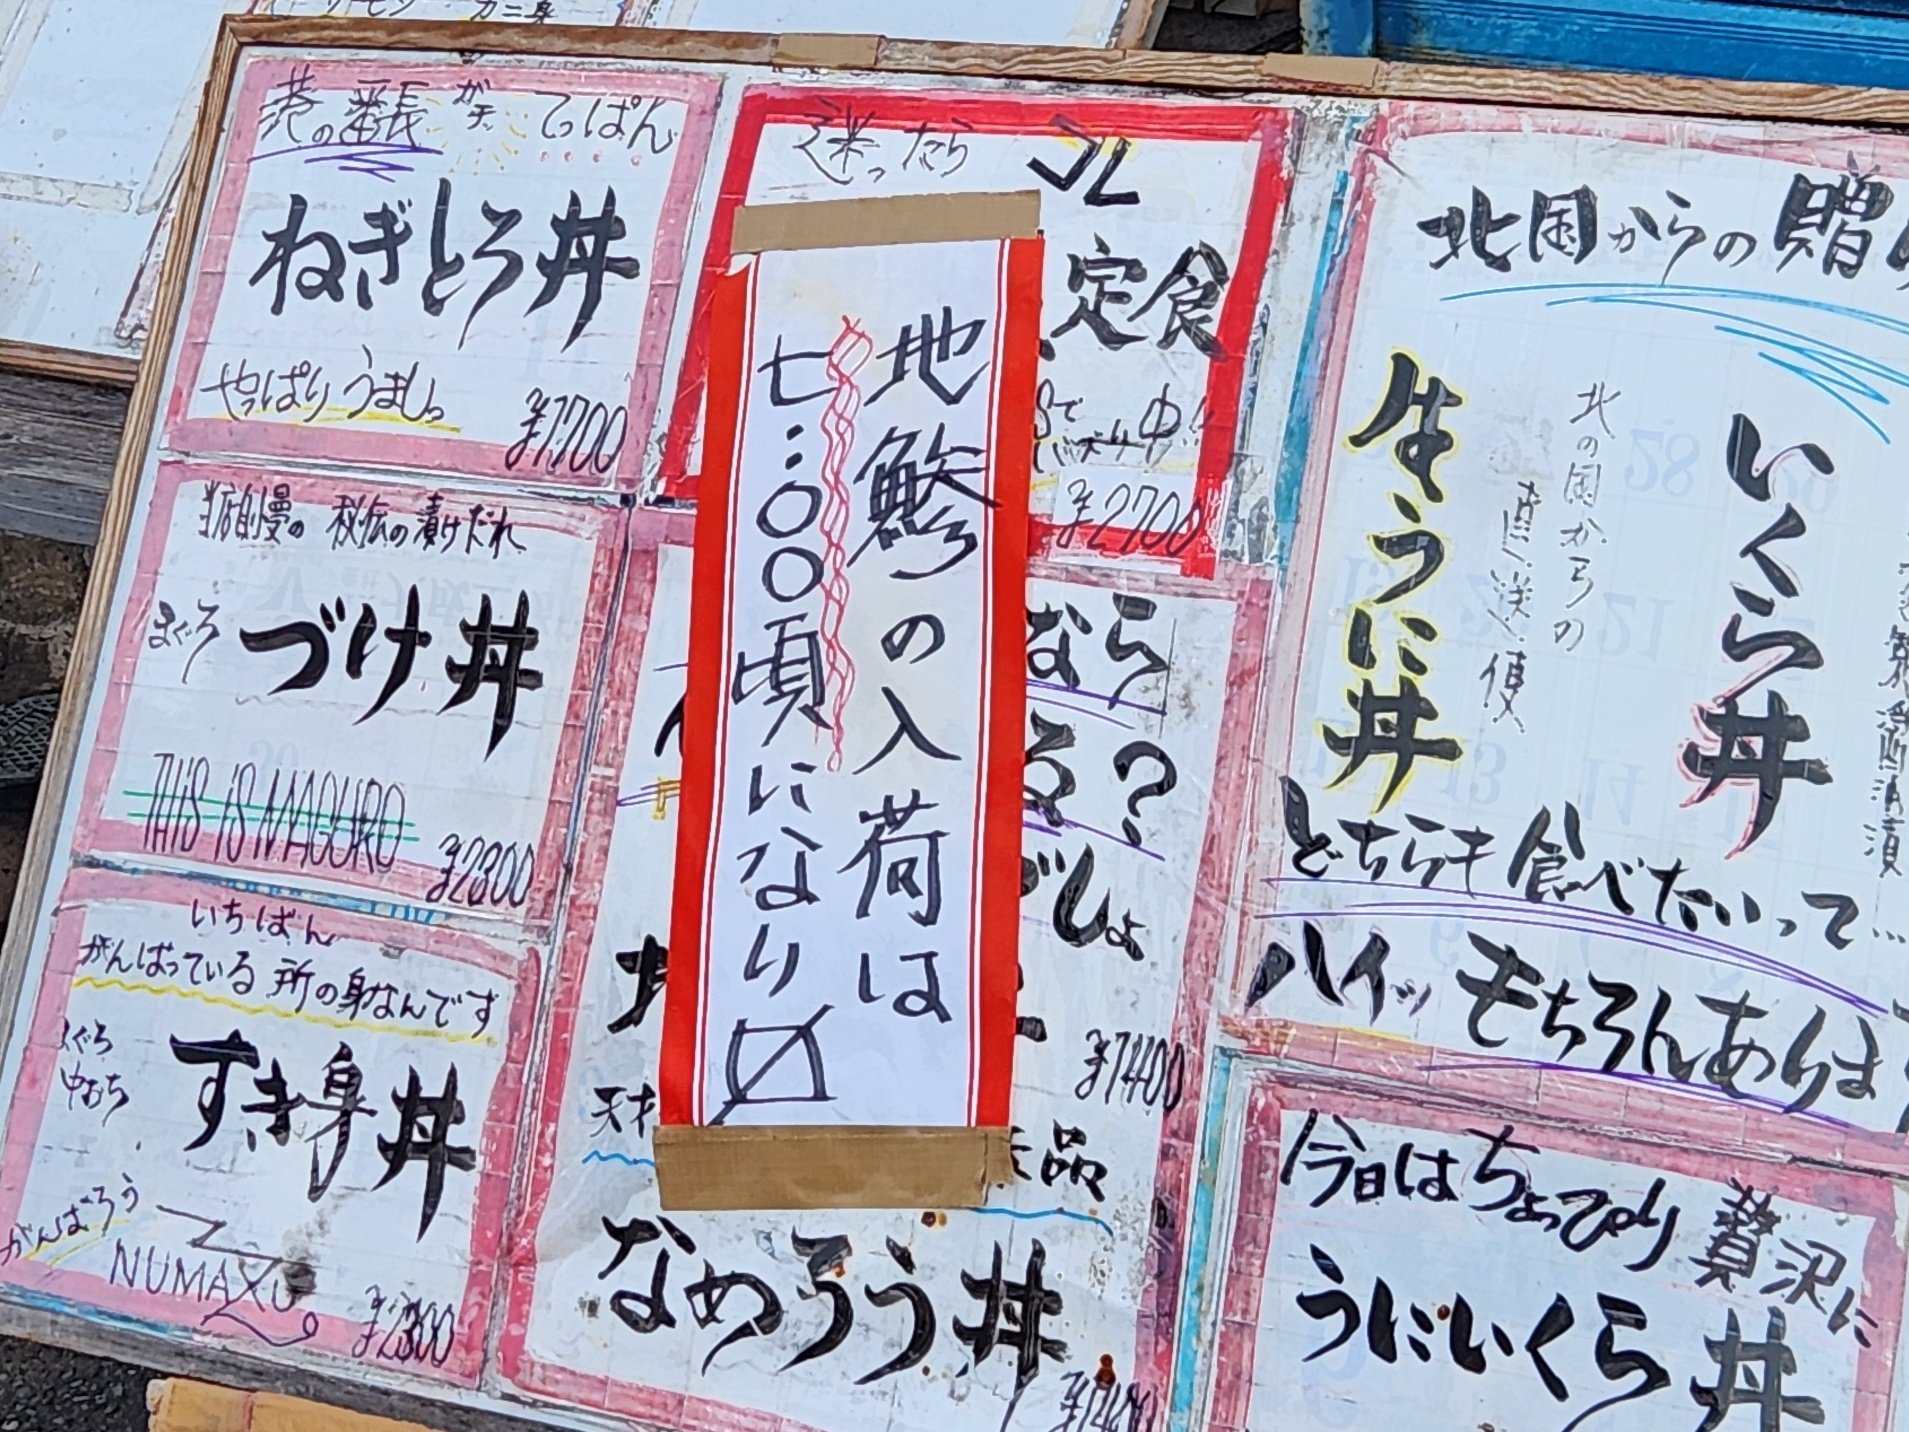 サーモン カニ身
港の番長 ガチッ てっぱん
ねぎとろ丼
やっぱりうまいっ
¥1700
当店自慢の 秘伝の漬けだれ
まぐろ
づけ丼
THiS iS MAGURO
¥2300
いちばん
がんばっている所の身なんです
まぐろ
中おち
すき身丼
がんばろう
NUMAZU
¥2300
迷ったら コレ
定食
¥2700
地鯵の入荷は
七:〇〇頃になり〼
なら
る?
でしょ
¥1400
品
なめろう丼
¥1400
北国からの贈
いくら丼
北の国からの
直送便
生うに丼
どちらも食べたいって…
ハイッ もちろんありま
今日はちょっぴり贅沢に
うにいくら丼